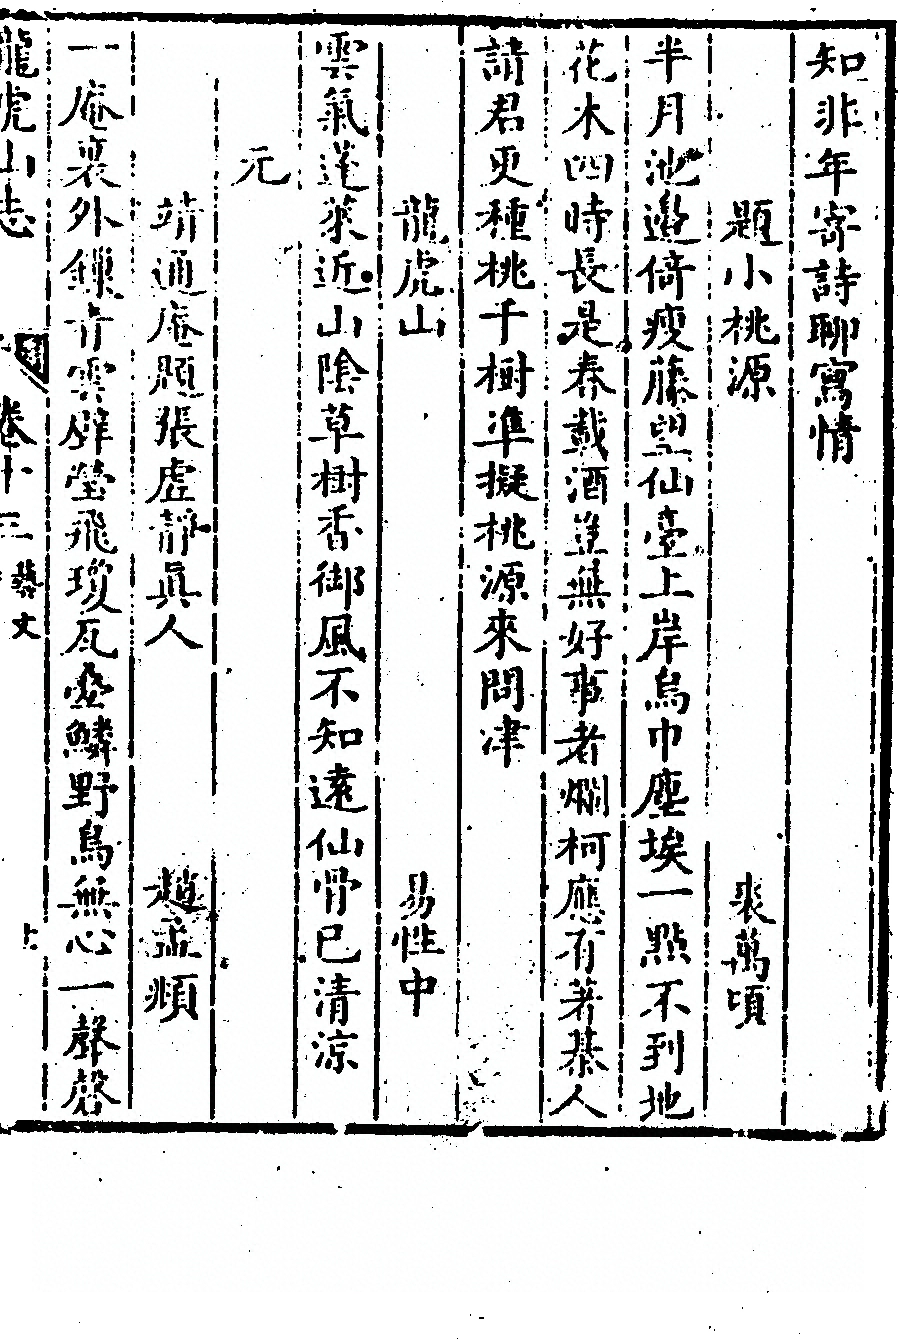 知非年寄詩聊寫情
題小桃源 裘萬頃
半月池邊倚瘦藤望仙臺上岸烏巾塵埃一點不到地
花木四時長是春載酒豈無好事者爛柯應有著棊人
請君更種桃千樹準擬桃源來問津
龍虎山 易性中
雲氣蓬萊近山陰草樹香御風不知遠仙骨已清涼
元
靖通庵題張虛靜真人 趙孟頫
一庵裏外鎖青雲碎瑩飛瓊瓦疊鱗野鳥無心一聲磬
龍虎山志 卷十三 藝文